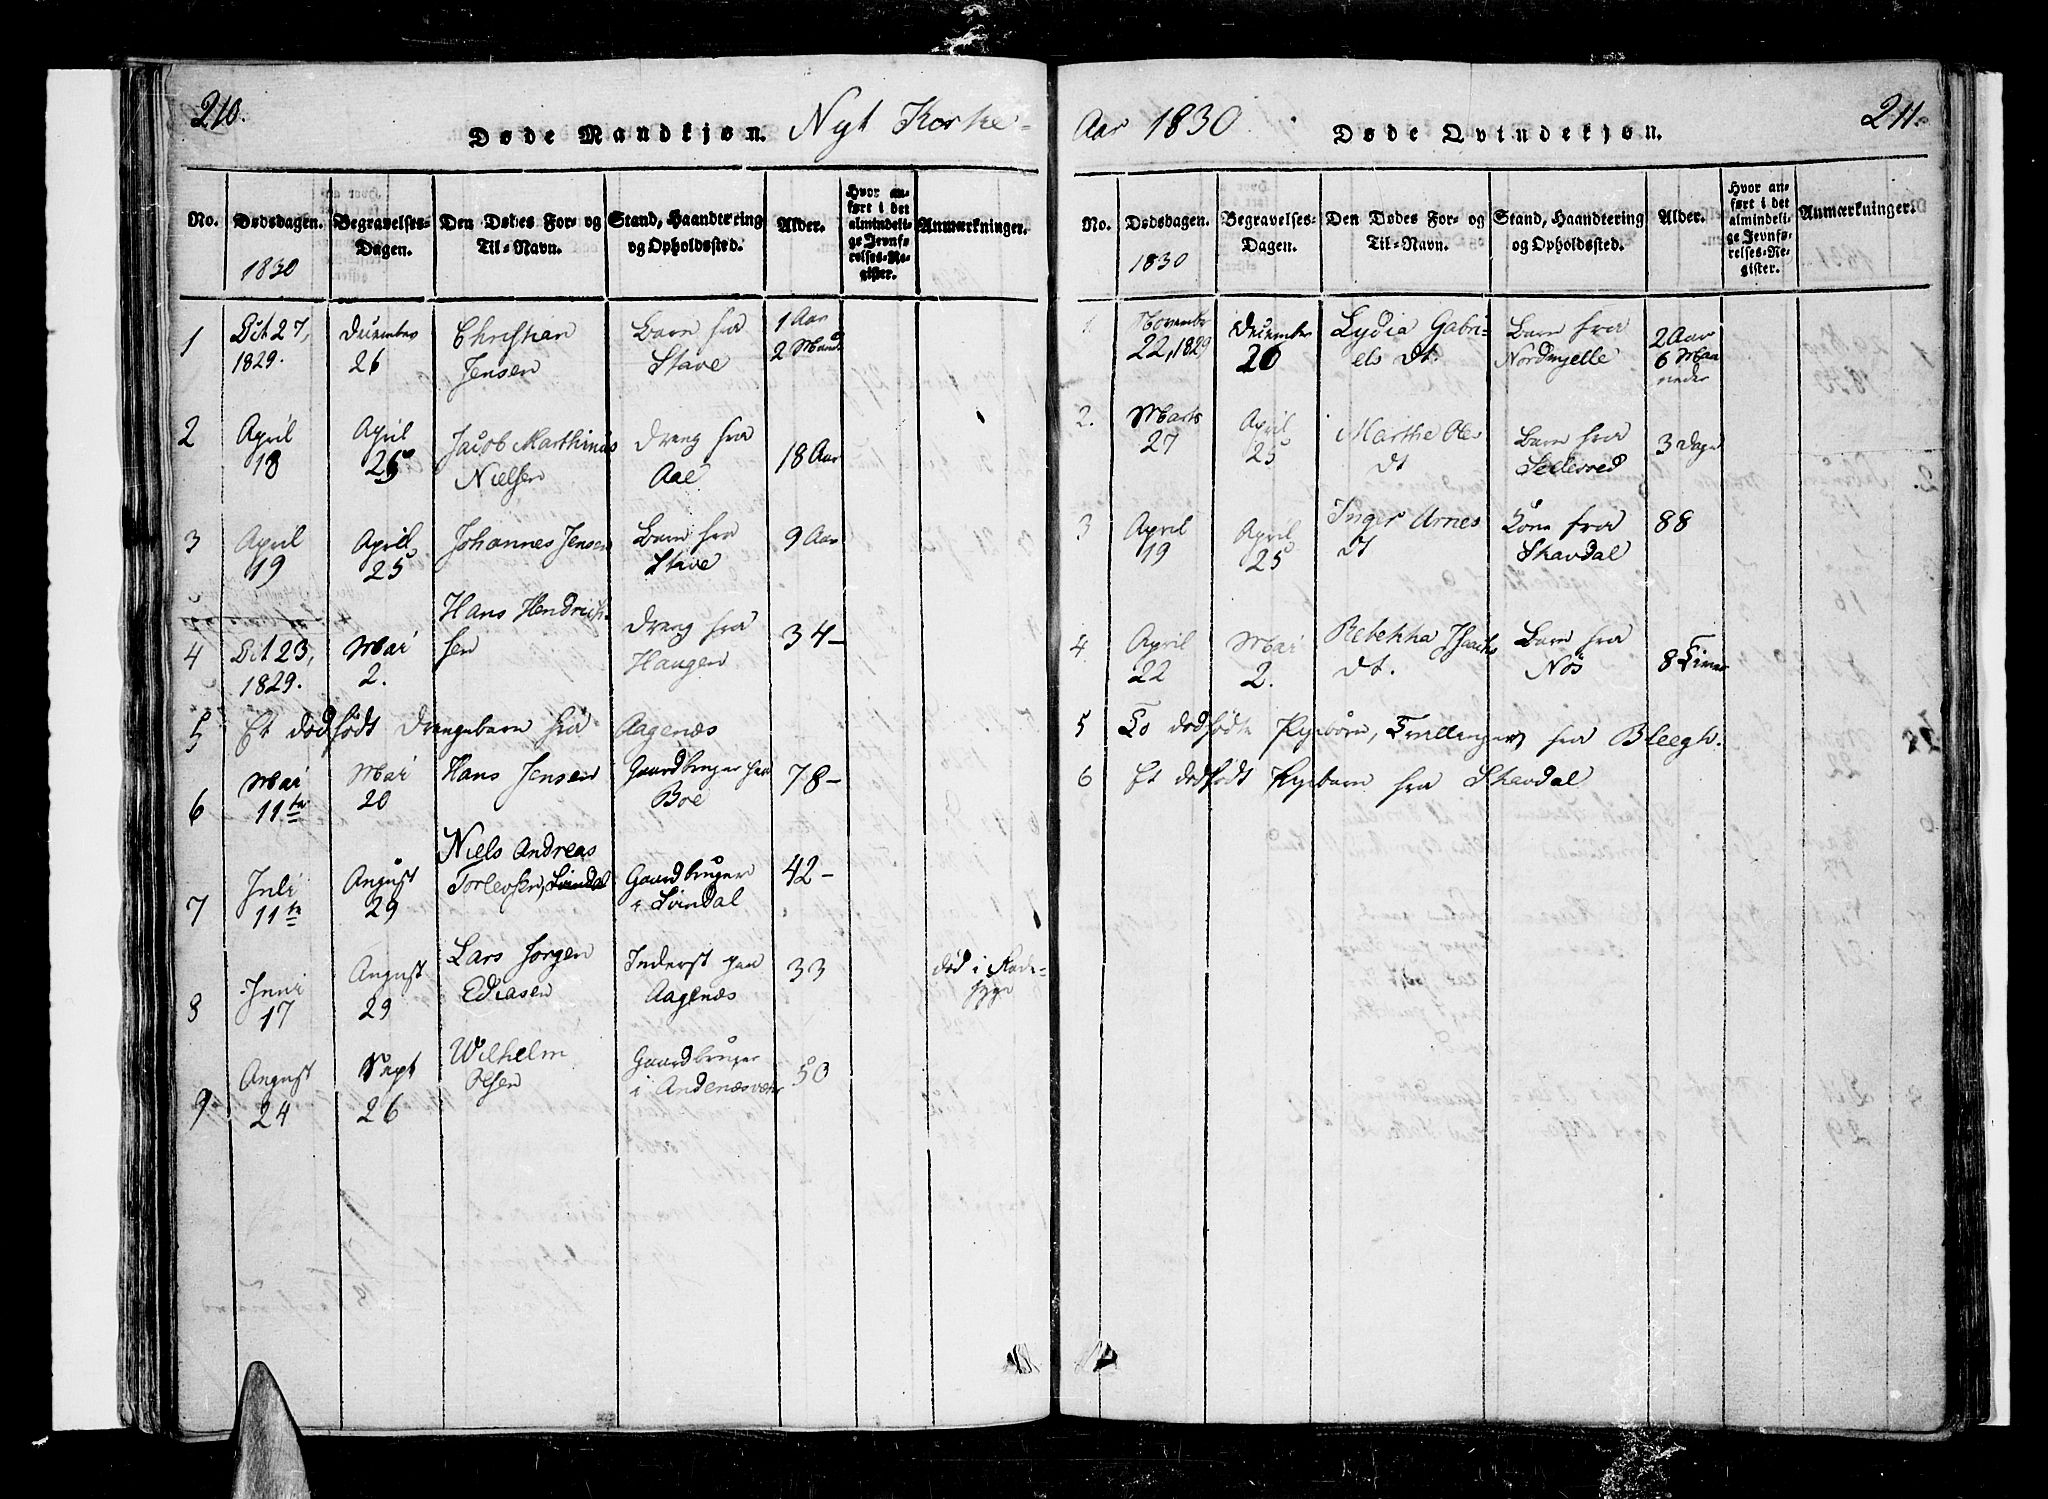 210.
Døde Mandkjøn. Nyt Kirke-
No. Dødsdagen. Begravelses-Dagen. Den Dødes For- og Til-Navn. Stand, Haandtering og Opholdssted. Alder. Hvor anført i det almindelige Jevnførelses-Register. Anmærkninger.
1830
1 Oct 27, December Christian Barn fra 1 Aar
1829. 26 Jensen Stave 2 Maand
2 April April Jacob Marthinus Dreng fra
18 25 Nielsen Aae 18 Aar
3 April April Johannes Jensen Barn fra 9 Aar
19 25 Stave
4 Oct 23, Mai Hans Hendrik- Dreng fra 34-
1829. 2. sen Haugen
5 Et dødfødt Drengebarn fra Aagenæs
6 Mai Mai Hans Jensen Gaardbruger paa 78-
11te 20 Boe
Niels Andreas
7 Juli August Torlevsen, Gaardbruger 42-
11te 29 i Svindal
8 Juni August Lars Jørgen Inderst paa 33 død i Rade-
17 29 Ediasen Aagenæs syge
9 August Sept Wilhelm Gaardbruger 50
24 26 Olsen i Andenæsvær
Aar 1830. Døde Qvindekjøn. 211.
No. Dødsdagen. Begravelses-Dagen. Den Dødes For- og Til-Navn. Stand, Haandtering og Opholdssted. Alder. Hvor anført i det almindelige Jevnførelses-Register. Anmærkninger.
1830
1 November December Lydia Gabri- Barn fra 2 Aar
22, 1829 26 els dt. Nordmjelle 6 Maa
neder
2. Marts April Marthe Ols Barn fra 3 Dage
27 25 dt
3 April April Inger Arnes Kone fra 88
19 25 dt Skavdal
4 April Mai Rebekka Isaachs Barn fra 8 Timer
22 2. dt. Nøs
5 To dødfødte Pigebørn, Tvillinger, fra Bleegh.
6 Et dødfødt Pigebarn fra Skavdal